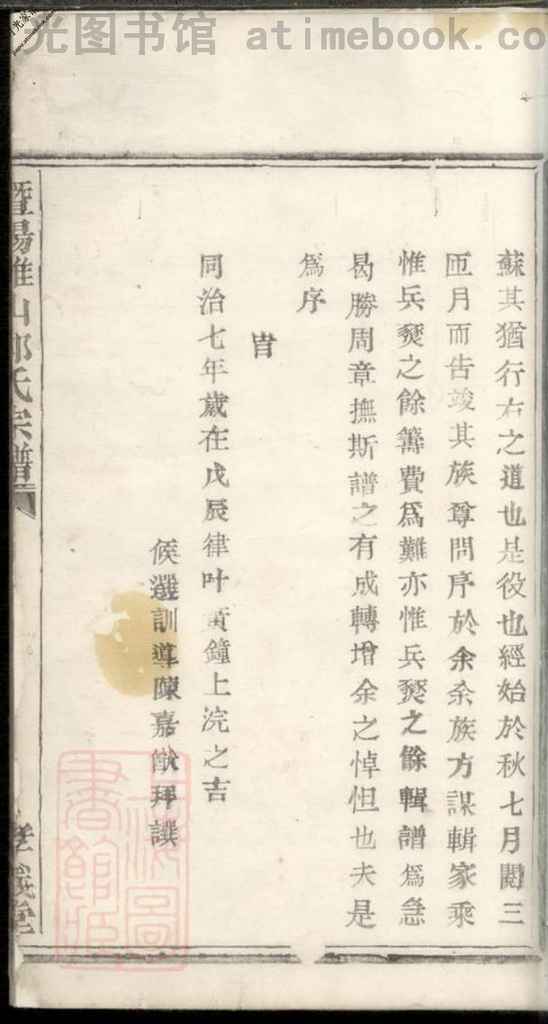 光图书馆 atimebook.co
蘇其猶行古之道也是役也經始於秋七月閱三
匝月而告竣其族尊問序於余余族方謀輯家乘
惟兵燹之餘籌費為難亦惟兵燹之餘輯譜為急
曷勝周章撫斯譜之有成轉增余之悼怛也夫是
為序
旹
同治七年歲在戊辰律叶黃鐘上浣之吉
候選訓導陳嘉猷拜譔
暨陽 山 氏宗譜
孝義堂